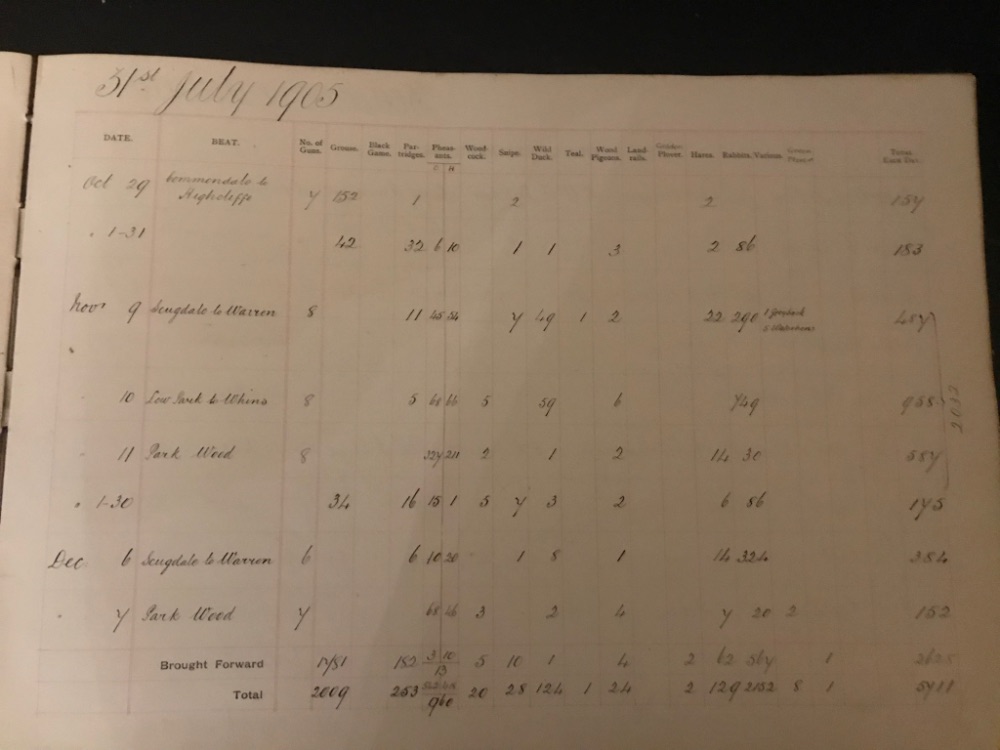 31st July 1905
DATE. BEAT. No. of Guns. Grouse. Black Game. Par- tridges. Pheas- ants. Wood- cock. Snipe. Wild Duck. Teal. Wood Pigeons. Land- rails. Golden Plover. Hares. Rabbits. Various. Total
C H
Oct 29 Commondale to
Highcliffe 7 152 1 2 2 157
" 1-31 42 32 6 10 1 1 3 2 86 183
Novr 9 Scugdale to Warren 8 11 45 54 7 49 1 2 22 290 487
10 Low Park to Whins 8 5 66 5 59 6 749 958
2012
" 11 Park Wood 8 327 211 2 1 2 14 30 587
" 1-30 34 16 15 1 5 7 3 2 6 86 175
Dec 6 Scugdale to Warren 6 6 10 20 1 8 1 14 324 384
" 7 Park Wood 7 68 46 3 2 4 7 20 2 152
Brought Forward 1781 182 3 10 5 10 1 4 2 62 567 1 2628
13
Total 2009 253 20 28 124 1 24 2 129 2152 8 1 5711
960